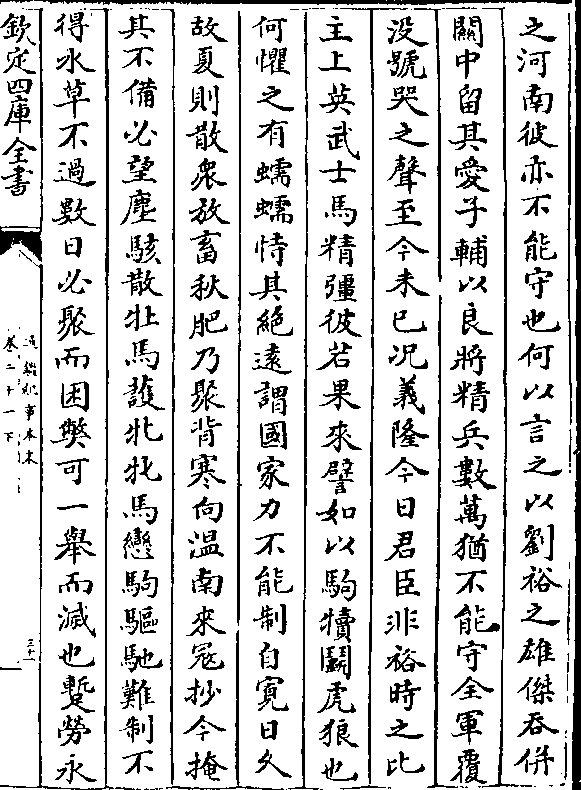 之河南彼亦不能守也何以言之以劉裕之雄傑吞併
關中留其愛子輔以良將精兵數萬猶不能守全軍覆
没號哭之聲至今未已况義隆今日君臣非裕時之比
主上英武士馬精彊彼若果來譬如以駒犢鬭虎狼也
何懼之有蠕蠕恃其絶遠謂國家力不能制自寛日久
故夏則散衆放畜秋肥乃聚背寒向温南來冦抄今掩
其不備必望塵駭散牡馬護牝牝馬戀駒驅馳難制不
得水草不過數日必聚而困弊可一舉而滅也蹔勞永
欽定四庫全書
通鑑紀事本末
卷二十一下
三十一